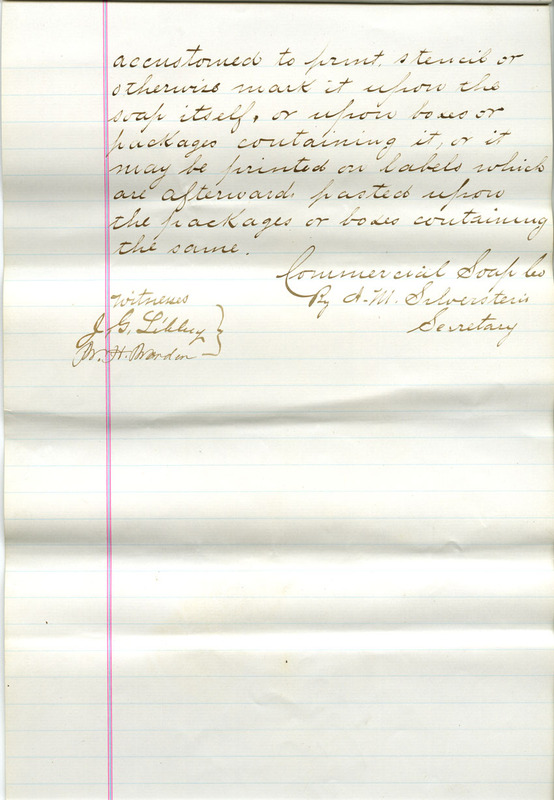 accustomed to print, stencil or
otherwise mark it upon the
soap itself, or upon boxes or
packages containing it, or it
may be printed on labels which
are afterwards pasted upon
the packages or boxes containing
the same.
Commercial Soap Co
By A. M. Silverstein
Secretary
Witnesses
J. G. Libbey
W. H.